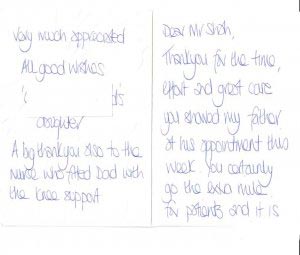 Dear Mr Shah,
Thankyou for the time,
effort and great care
you showed my father
at his appointment this
week. You certainly
go the extra mile
for patients and it is
very much appreciated
All good wishes
daughter
A big thankyou also to the
nurse who fitted Dad with
the knee support